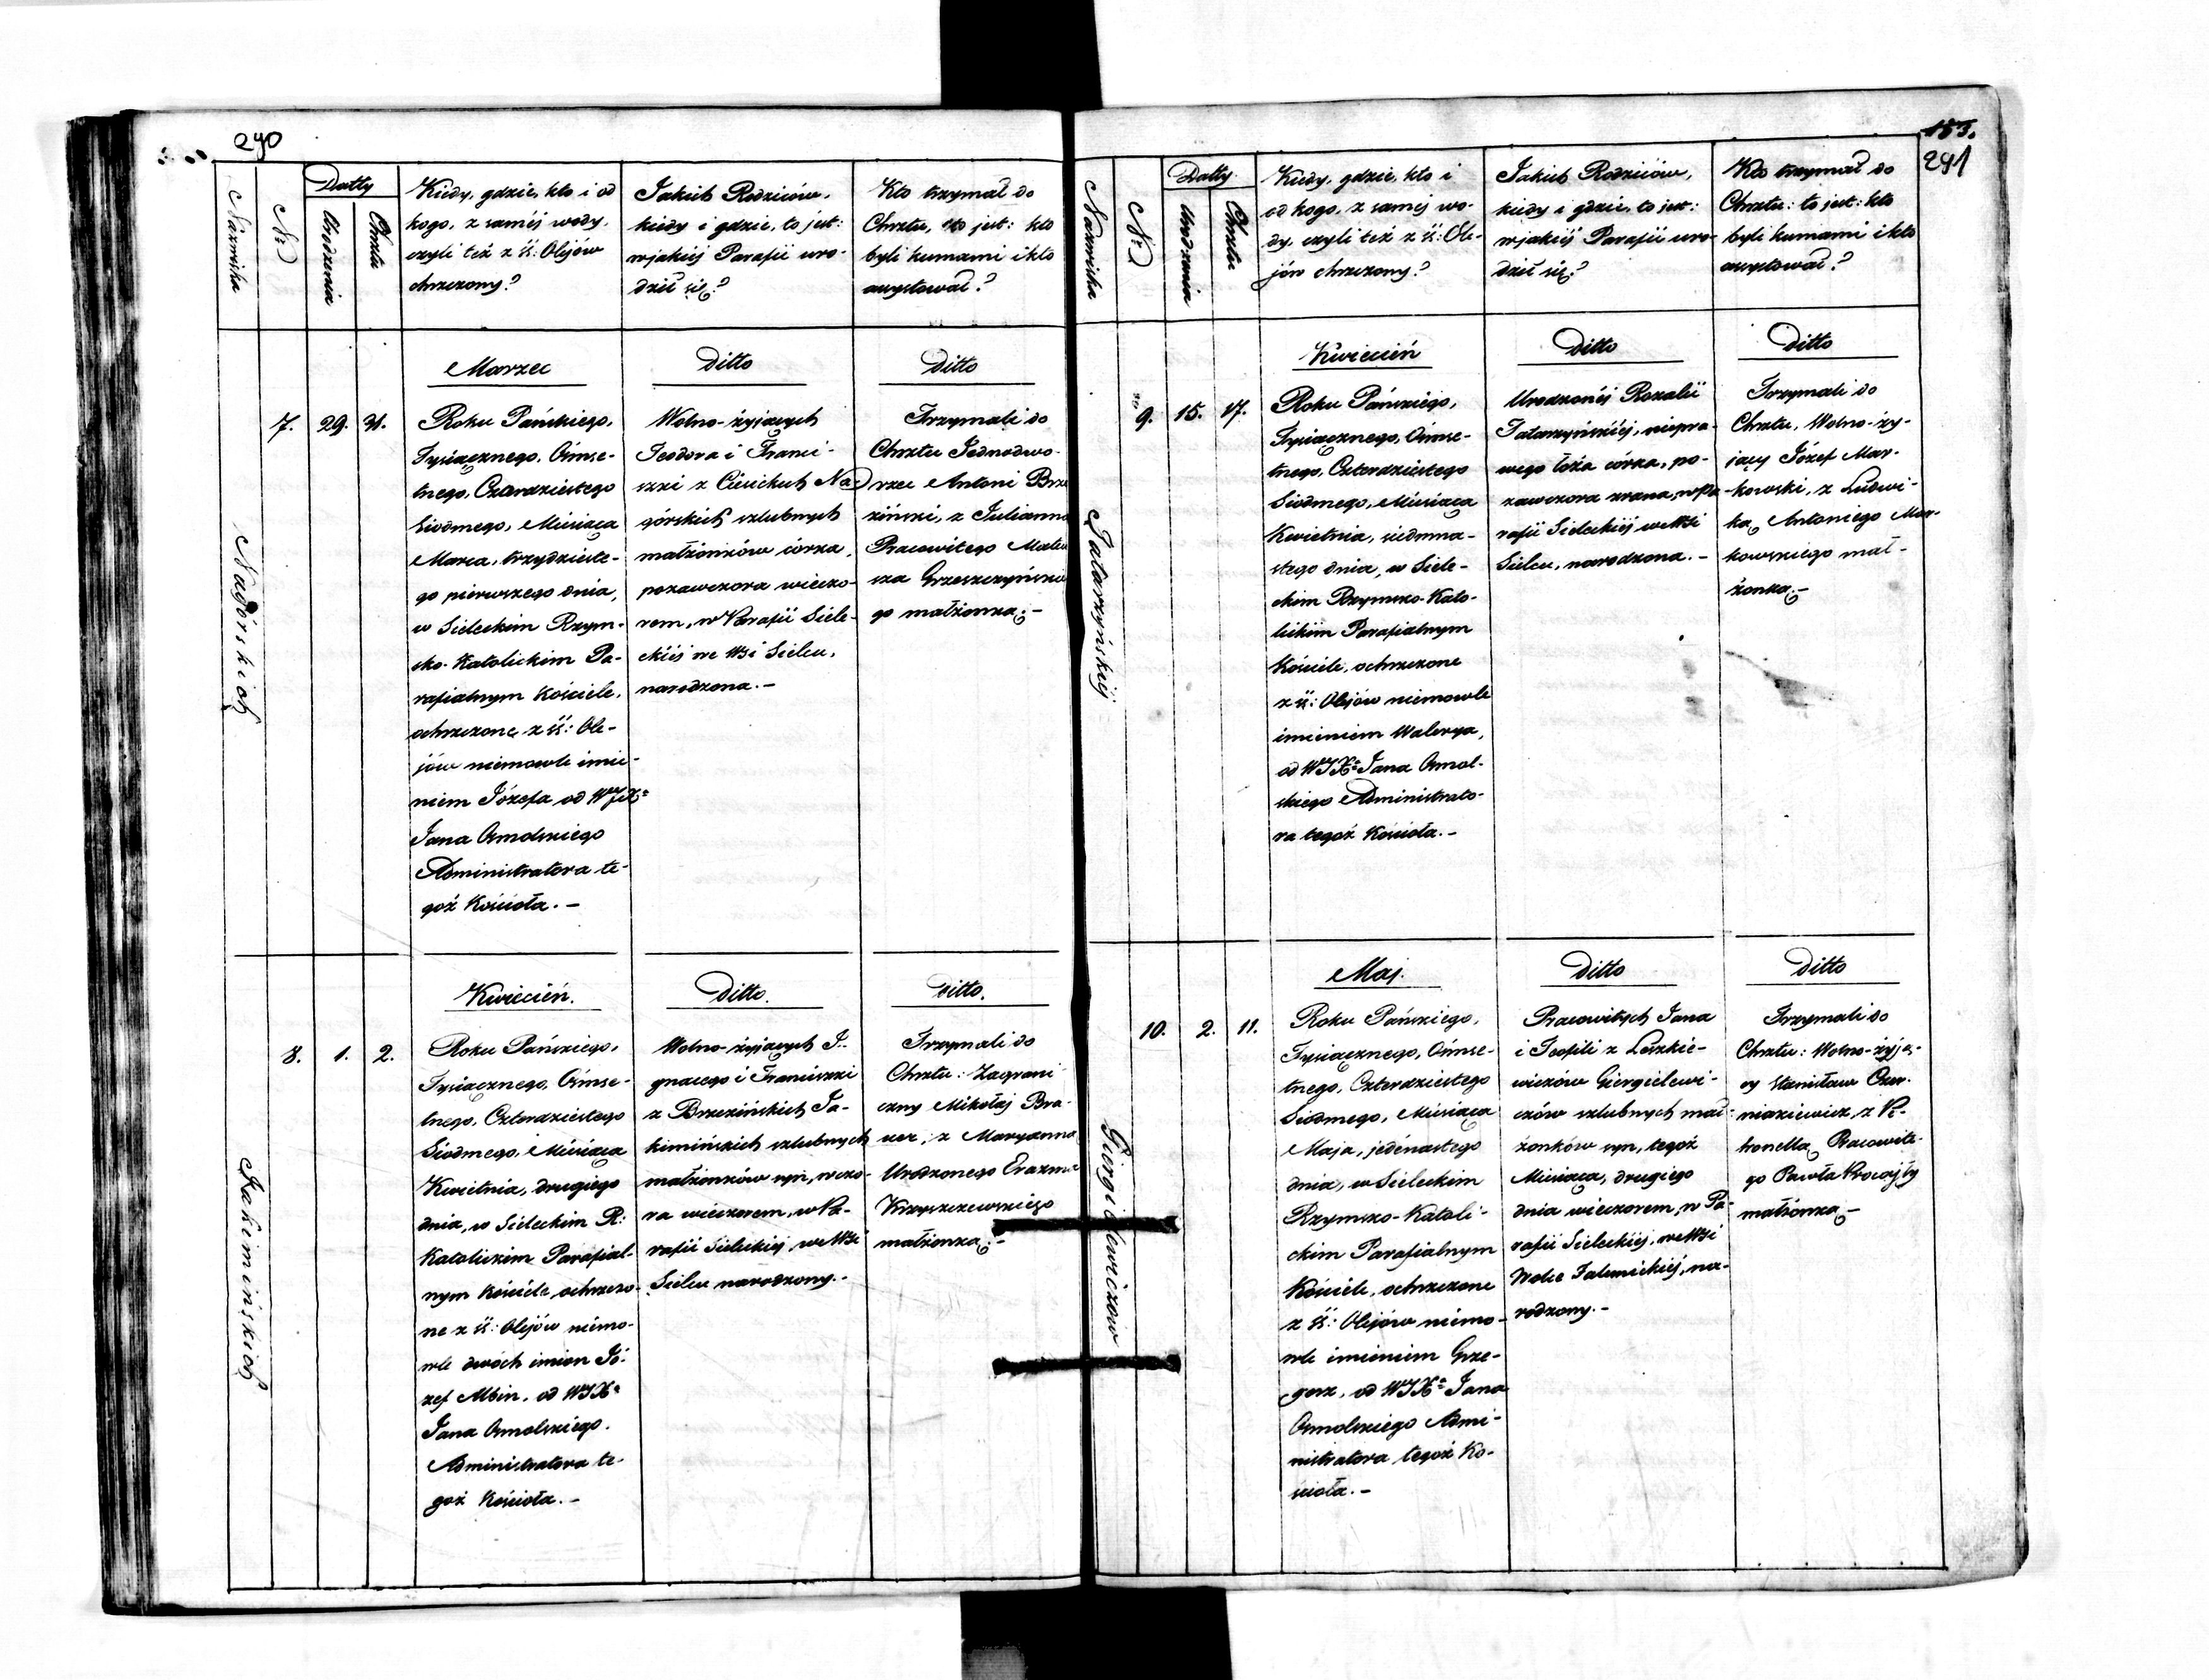 290
Nazwiska
Nr
Datty
Urodzenia
Chrztu
Kiedy, gdzie, kto i od
kogo, z saméj wody,
czyli też z śś: Olejów
chrzczony?
Jakich Rodziców,
kiedy i gdzie, to jest:
w jakiéj Parafii uro-
dził się?
Kto trzymał do
Chrztu, to jest: kto
byli kumami i kto
assystował?
Nagórskich
7.
29.
31.
Marzec
Roku Pańskiego,
Tysiącznego, Ośmse-
tnego, Czterdziestego
Siódmego, Miesiąca
Marca, trzydzieste-
go pierwszego dnia,
w Sieleckim Rzym-
sko-Katolickim Pa-
rafialnym Kościele,
ochrzczone z śś: Ole-
jów niemowle imie-
niem Józefa od WJXa
Jana Osmolskiego
Administratora te-
goż Kościoła.-
Ditto
Wolno-żyjących
Teodora i Franci-
szki z Cisickich Na-
górskich szlubnych
małżonków córka,
pozawczora wieczo-
rem, w Parafii Siele-
ckiéj we Wsi Sielcu,
narodzona.-
Ditto
Trzymali do
Chrztu Jednodwo-
rzec Antoni Brze
ziński, z Julianną
Pracowitego Mateu
sza Grzeszczyńskie
go małżonką.-
Jakimińskich
8.
1.
2.
Kwiecień.
Roku Pańskiego,
Tysiącznego, Ośmse-
tnego, Czterdziestego
Siódmego, Miesiąca
Kwietnia, drugiego
dnia, w Sieleckim R:
Katolickim Parafial-
nym Kościele, ochrzczo-
ne z śś: Olejów niemo-
wle dwóch imion Jó-
zef Albin, od WJXa
Jana Osmolskiego,
Administratora te-
goż Kościoła.-
Ditto.
Wolno-żyjących I-
gnacego i Franciszki
z Brzezińskich Ja-
kimińskich szlubnych
małżonków syn, wczo-
ra wieczorem, w Pa-
rafii Sieleckiéj, we Wsi
Sielcu narodzony.-
Ditto.
Trzymali do
Chrztu: Zagrani
czny Mikołaj Bra-
uer, z Maryanną
Urodzonego Erazma
Krzyszczewskiego
małżonką.-
153.
291
Nazwiska
Nr
Datty
Urodzenia
Chrztu
Kiedy, gdzie, kto i
od kogo, z saméj wo-
dy, czyli też z śś: Ole-
jów chrzczony?
Jakich Rodziców,
kiedy i gdzie, to jest:
w jakiéj Parafii uro-
dził się?
Kto trzymał do
Chrztu: to jest: kto
byli kumami i kto
assystował?
Tatarzyńskiéj
9.
15.
17.
Kwiecień
Roku Pańskiego,
Tysiącznego, Ośmse-
tnego, Czterdziestego
Siódmego, Miesiąca
Kwietnia, siedmna-
stego dnia, w Siele-
ckim Rzymsko-Kato-
lickim Parafialnym
Kościele, ochrzczone
z śś: Olejów niemowle
imieniem Walerya,
od WJXa Jana Osmol-
skiego Administrato-
ra tegoż Kościoła.-
Ditto
Urodzonéj Rozalii
Tatarzyńskiéj, niepra-
wego łoża córka, po-
zawczora zrana, w Pa-
rafii Sieleckiéj we Wsi
Sielcu, narodzona.-
Ditto
Trzymali do
Chrztu, Wolno-ży-
jący Józef Mar-
kowski, z Ludwi-
ką Antoniego Mar-
kowskiego mał-
żonką.-
Giergielewiczów
10.
2.
11.
Maj.
Roku Pańskiego,
Tysiącznego, Ośmse-
tnego, Czterdziestego
Siódmego, Miesiąca
Maja, jedénastego
dnia, w Sieleckim
Rzymsko-Katoli-
ckim Parafialnym
Kościele, ochrzczone
z śś: Olejów niemo-
wle imieniem Grze-
gorz, od WJXa Jana
Osmolskiego Admi-
nistratora tegoż Ko-
ścioła.-
Ditto
Pracowitych Jana
i Teofili z Leszkie-
wiczów Giergielewi-
czów szlubnych mał-
żonków syn, tegoż
Miesiąca, drugiego
dnia wieczorem, w Pa-
rafii Sieleckiéj, we Wsi
Wolce Falemickiéj, na-
rodzony.-
Ditto
Trzymali do
Chrztu: Wolno-żyją-
cy Stanisław Czer-
niakiewicz, z Pe-
tronellą Pracowite-
go Pawła
małżonką.-